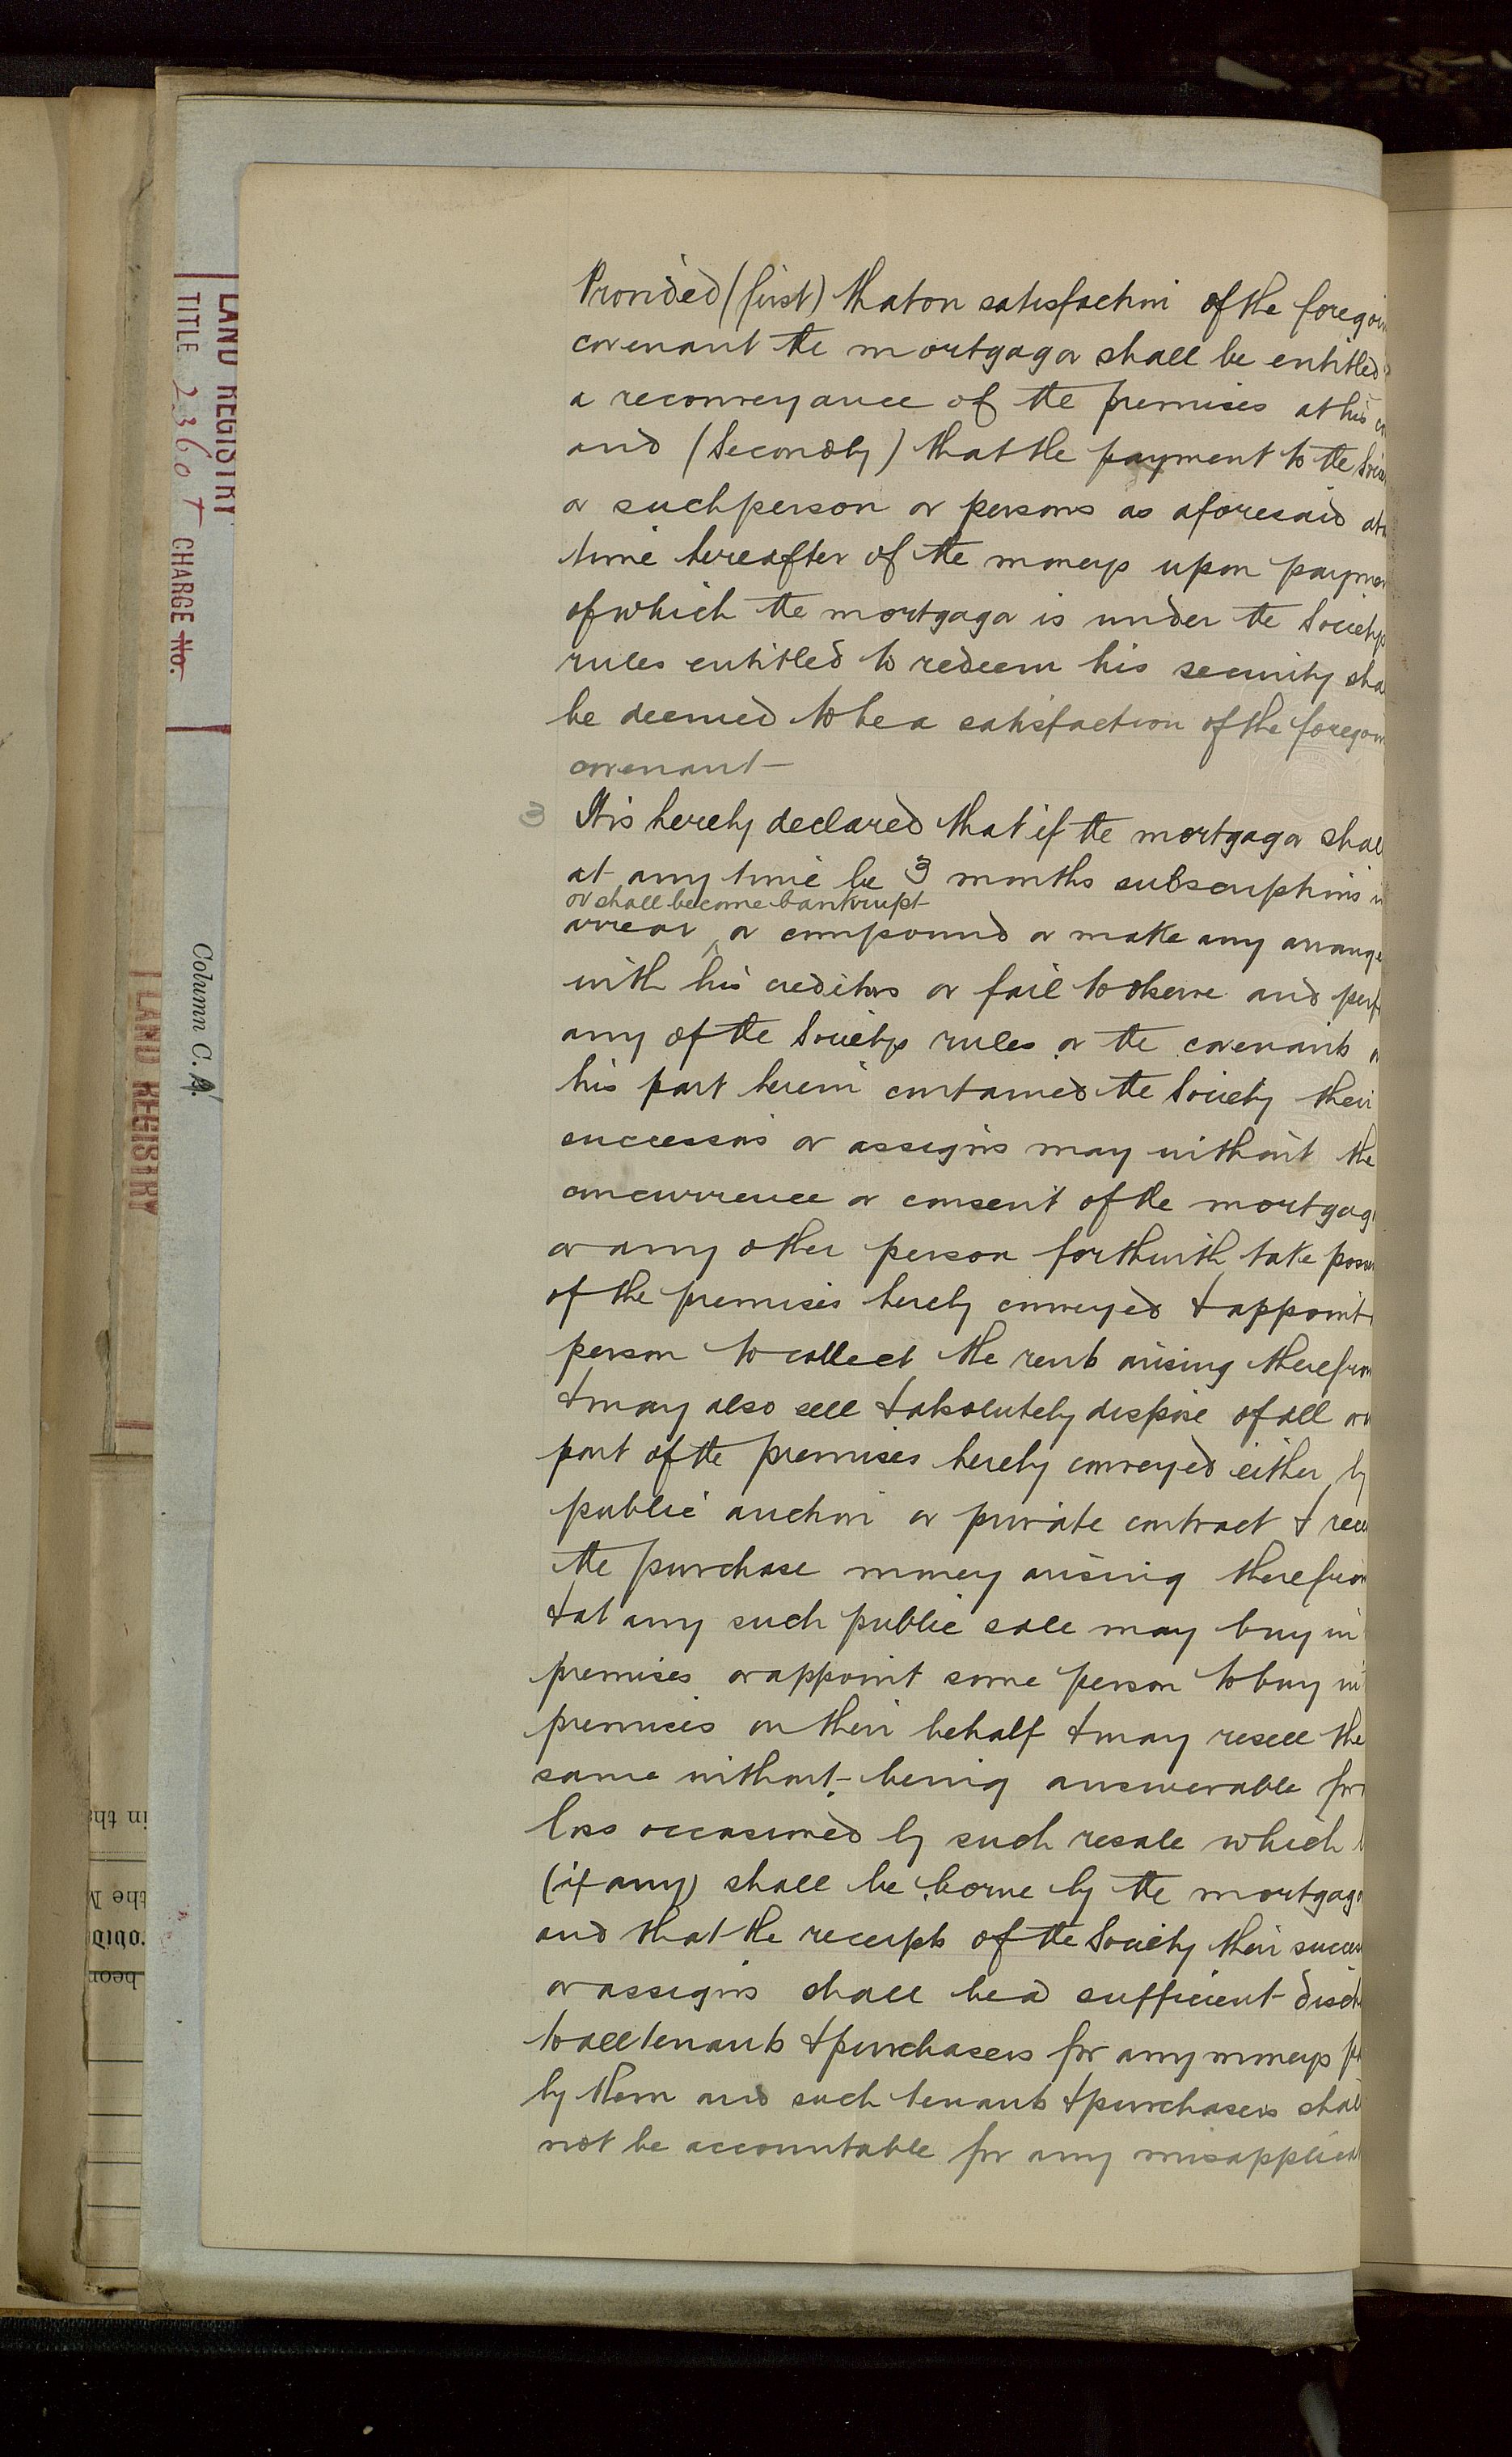 LAND REGISTRY
TITLE 2360T CHARGE No.
Column C.
LAND REGISTRY
Provided (first) that on satisfaction of the foregoin
covenant the mortgagor shall be entitled
a reconveyance of the premises at his
and (Secondly) that the payment to the Socie
or such person or persons as aforesaid at
time hereafter of the moneys upon paymen
of which the mortgagor is under the Societys
rules entitled to redeem his security sha
be deemed to be a satisfaction of the foregoin
covenant
3 It is hereby declared that if the mortgagor shal
at any time be 3 months subscriptions in
or shall become bankrupt
arrear ^ or compound or make any arrange
with his creditors or fail to observe and perf
any of the Societys rules or the covenants
his part herein contained the Society their
successors or assigns may without the
concurrence or consent of the mortgag
or any other person forthwith take posse
of the premises hereby conveyed & appoint
person to collect the rents arising therefrom
& may also sell & absolutely dispose of all or
part of the premises hereby conveyed either by
public auction or private contract & rece
the purchase money arising therefrom
& at any such public sale may buy in
premises or appoint some person to buy in
premises on their behalf & may resell the
same without being answerable for
loss occasioned by such resale which
(if any) shall be borne by the mortgag
and that the receipts of the Society their succes
or assigns shall be a sufficient disch
to all tenants & purchasers for any moneys
by them and such tenants & purchasers shall
not be accountable for any misapplicat
in the
the M